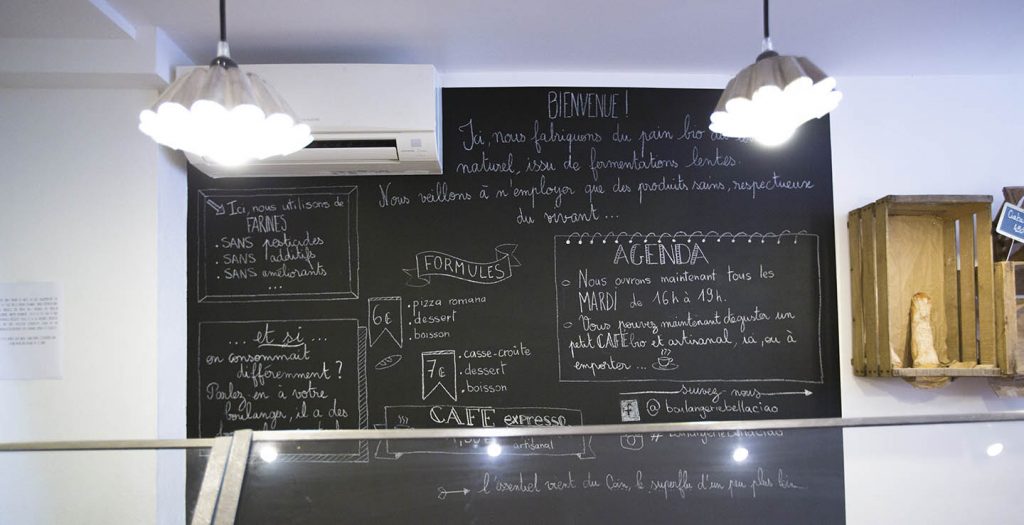 BIENVENUE !
Ici, nous fabriquons du pain bio au
naturel, issu de fermentations lentes.
Nous veillons à n'employer que des produits sains, respectueux
du vivant ...
Ici, nous utilisons de
FARINES
. SANS pesticides
. SANS additifs
. SANS améliorants
...
... et si ...
on consommait
différemment ?
Parlez-en à votre
boulanger, il a des
FORMULES
6€
. pizza romana
. dessert
. boisson
7€
. casse-croûte
. dessert
. boisson
CAFE expresso
artisanal
AGENDA
Nous ouvrons maintenant tous les
MARDI de 16h à 19h.
Vous pouvez maintenant déguster un
petit CAFE bio et artisanal, ici, ou à
emporter ...
suivez-nous
f @ boulangeriebellaciao
l'essentiel vient du Coin, le superflu d'un peu plus loin...